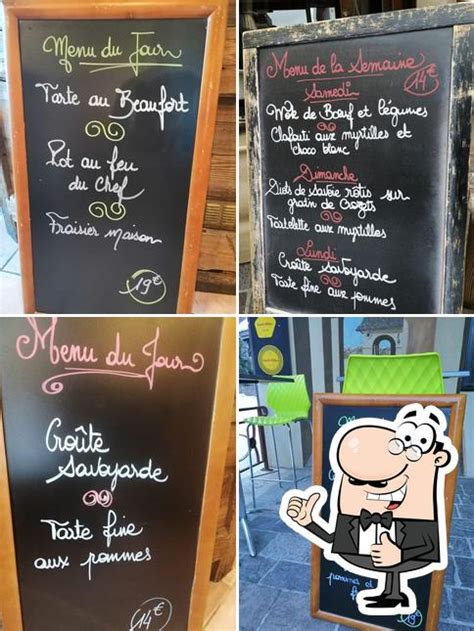 Menu du Jour
Tarte au Beaufort
Pot au feu
du chef
Fraisier maison
19€
Menu de la Semaine
14€
Samedi
Wok de Bœuf et légumes
Clafouti aux myrtilles et
choco blanc
Dimanche
Diots de Savoie rôtis sur
grain de Crozets
Tartelette aux myrtilles
Lundi
Croûte Savoyarde
Tarte fine aux pommes
Menu du Jour
Croûte
Savoyarde
Tarte fine
aux pommes
14€
19€